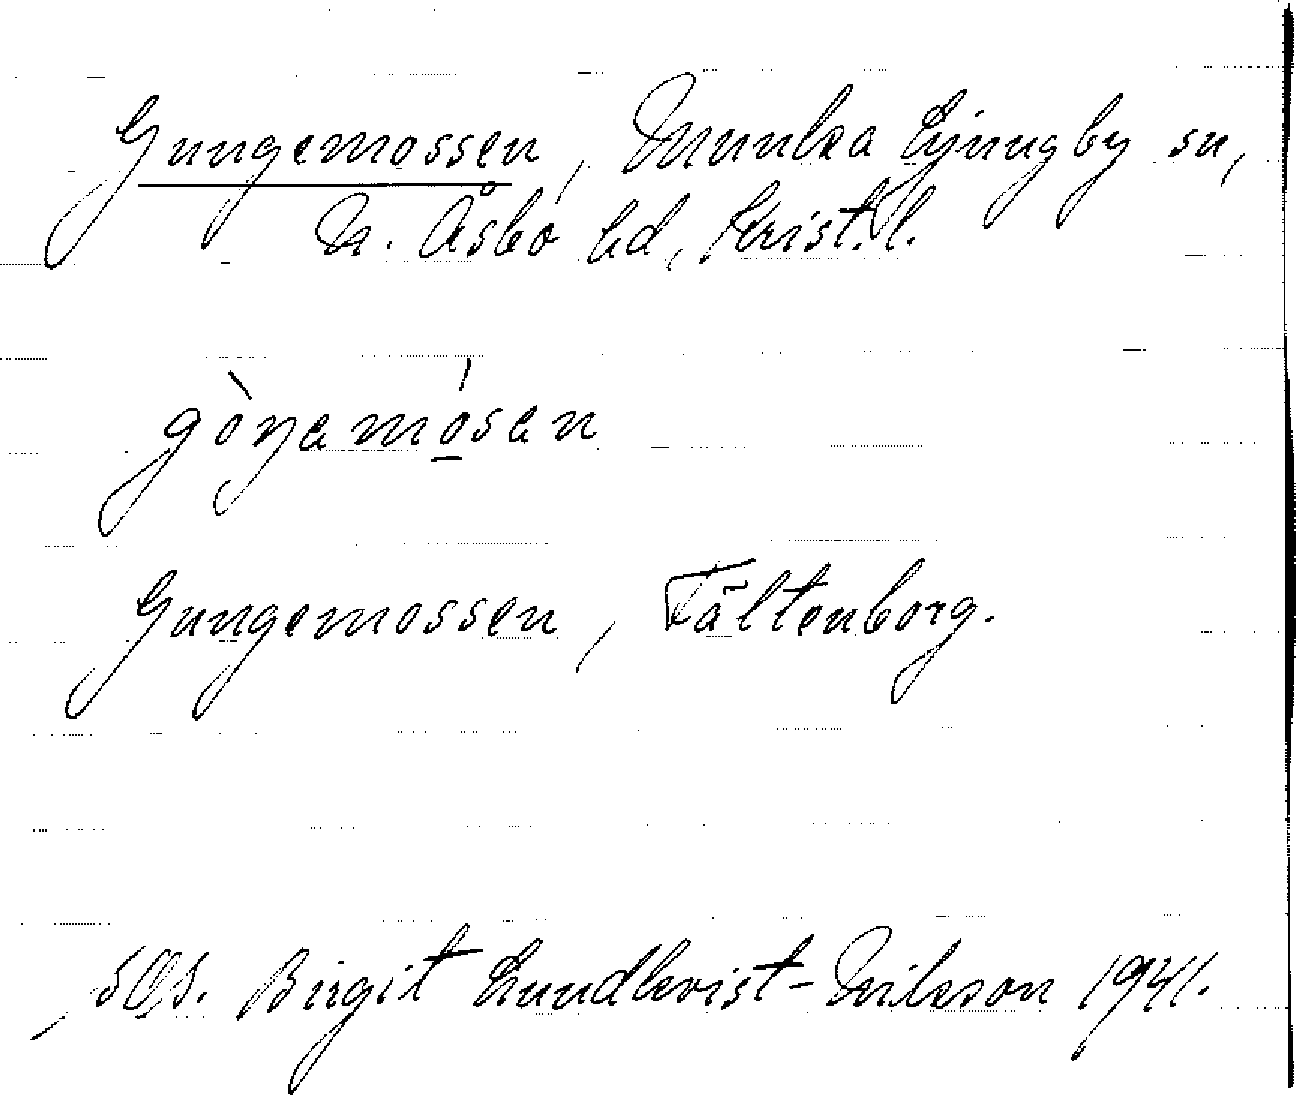 Gungemossen, Munka Ljungby sn,
N. Åsbo hd, Krist. l.
gòŋamósan
Gungemossen, Fältenborg.
Birgit Lundkvist-Nilsson 1941.